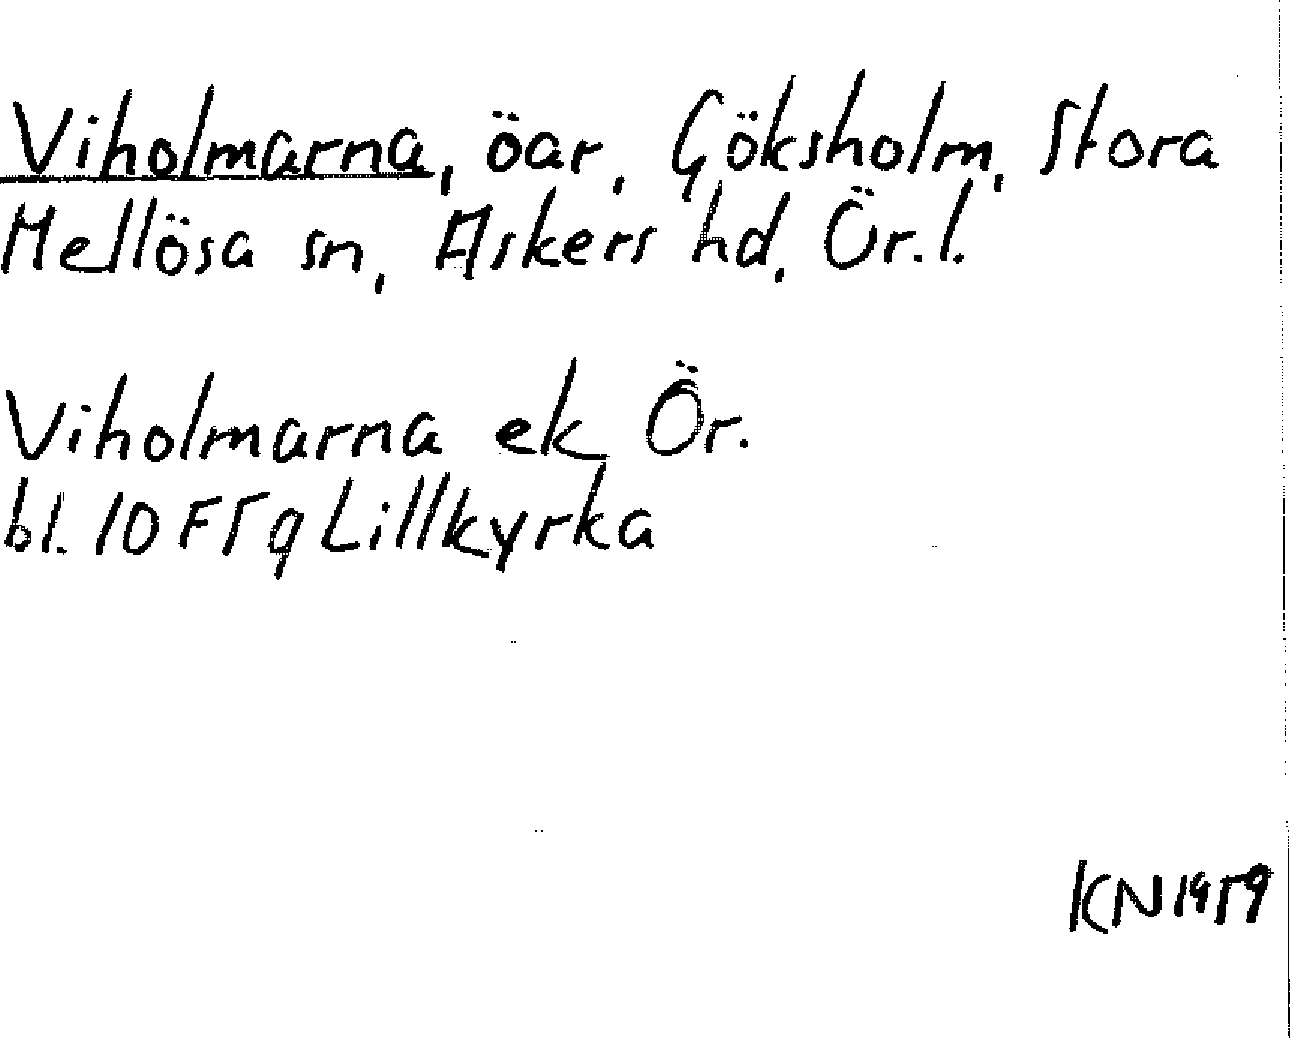 Viholmarna, öar, Göksholm, Stora
Mellösa sn, Askers hd, Ör.l.
Viholmarna ek Ör.
bl. 10 F5g Lillkyrka
KN 1959